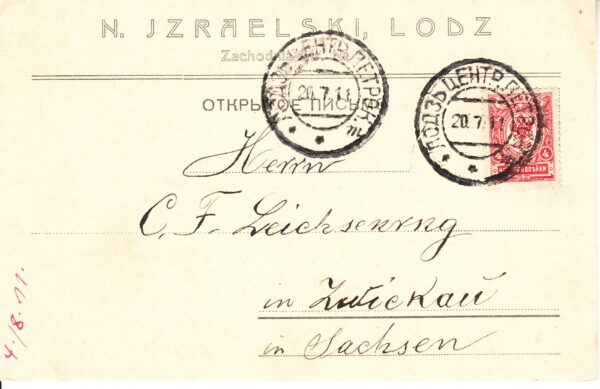 N. JZRAELSKI, LODZ
ОТКРЫТОЕ ПИСЬМО
ЛОДЗЬ ЦЕНТР. ПЕТРОК.
20.7.11
ЛОДЗЬ ЦЕНТР. ПЕТРОК.
20.7.11
4
Herrn
C. F. Leichsenring
in Zwickau
in Sachsen
4./8. 11.